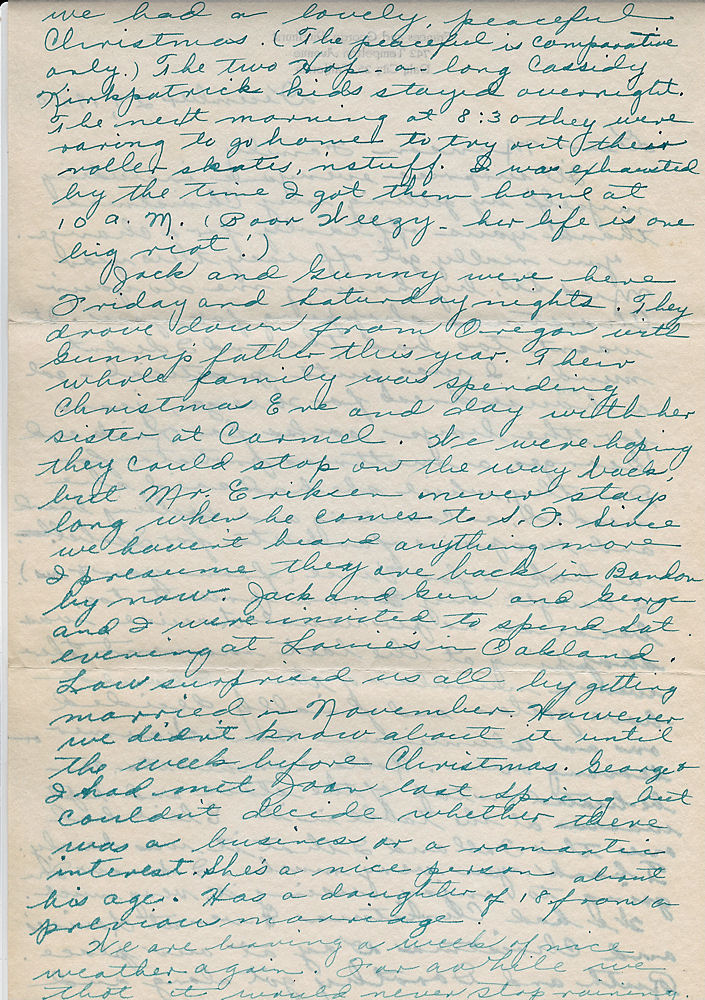 we had a lovely, peaceful
Christmas. (The peaceful is comparative
only.) The two Hop-a-long Cassidy
Kirkpatrick kids stayed overnight.
The next morning at 8:30 they were
raring to go home to try out their
roller skates, instuff. I was exhausted
by the time I got them home at
10 A.M. (Poor Weezy - her life is one
big riot!)
Jack and Gunny were here
Friday and Saturday nights. They
drove down from Oregon with
Gunny's father this year. Their
whole family was spending
Christmas Eve and day with her
sister at Carmel. We were hoping
they could stop on the way back,
but Mr. Eriksen never stays
long when he comes to S.F. Since
we haven't heard anything more
I presume they are back in Bandon
by now. Jack and Gun and George
and I were invited to spend Sat.
evening at Louie's in Oakland.
Lou surprised us all by getting
married in November. However
we didn't know about it until
the week before Christmas. George &
I had met Joan last spring but
couldn't decide whether there
was a business or a romantic
interest. She's a nice person about
his age. Has a daughter of 18 from a
previous marriage
We are having a week of nice
weather again. For awhile we
that it would never stop raining.